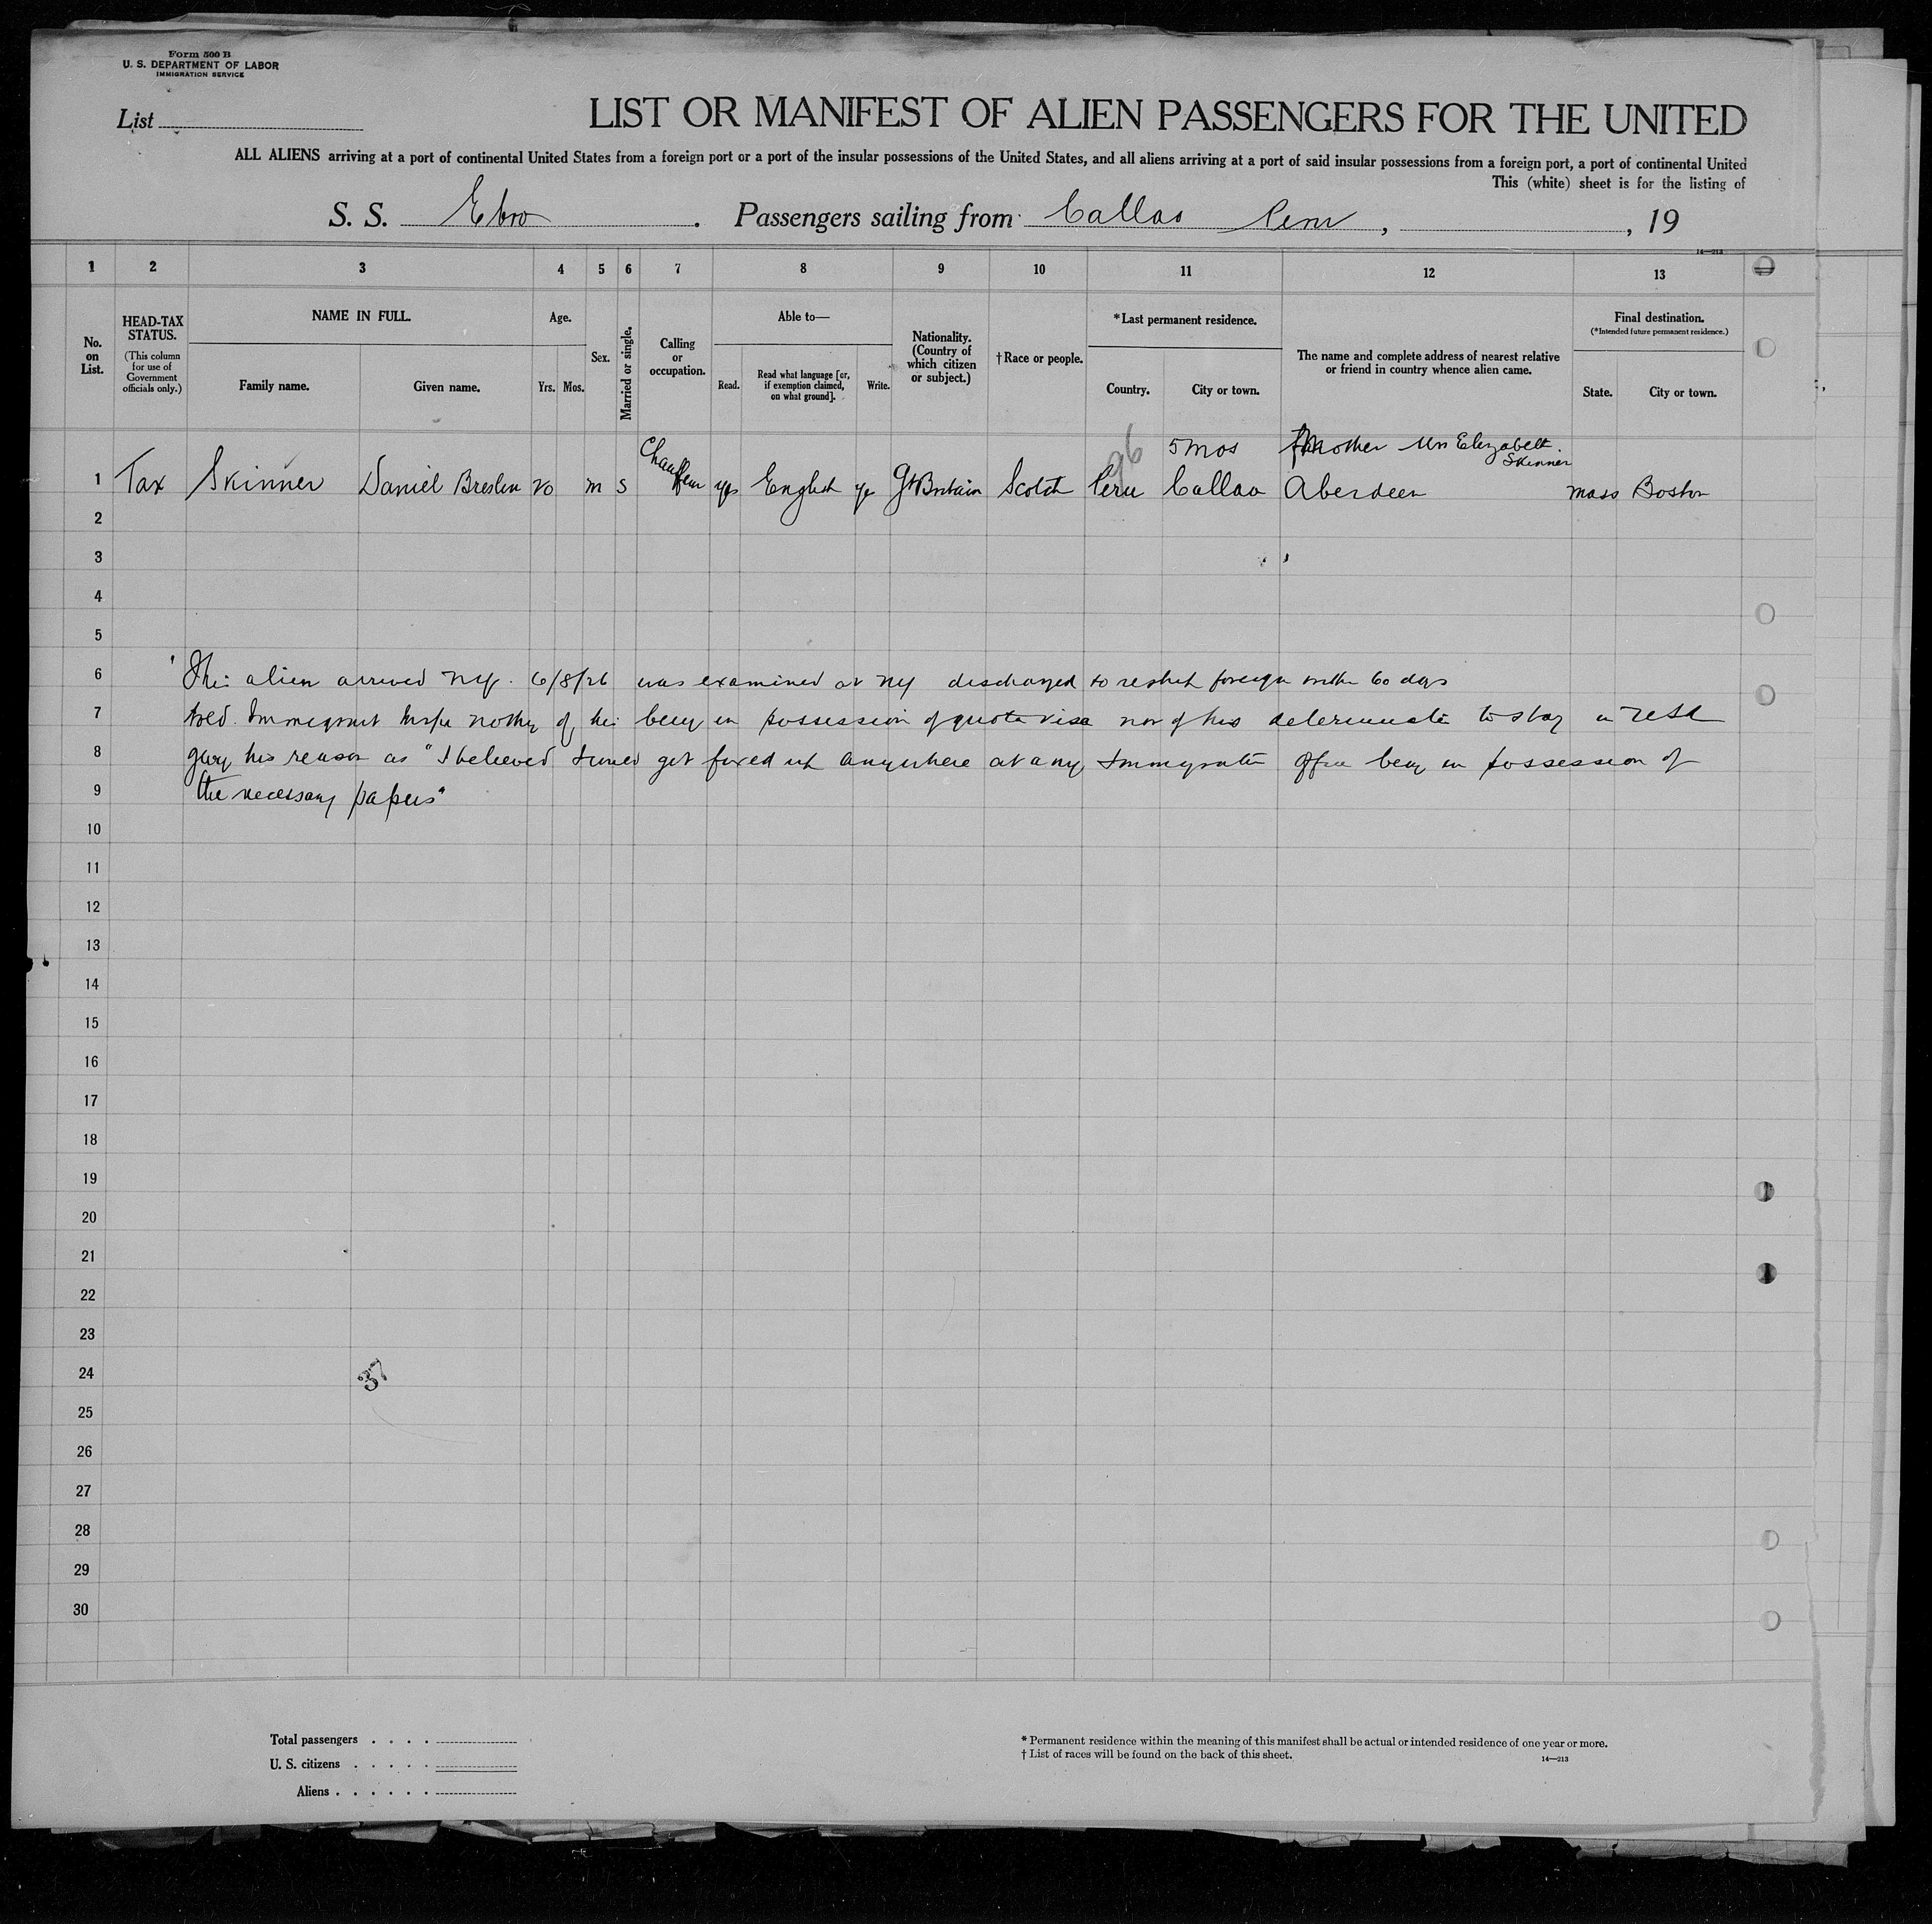 Form 500 B
U. S. DEPARTMENT OF LABOR
IMMIGRATION SERVICE
List
LIST OR MANIFEST OF ALIEN PASSENGERS FOR THE UNITED
ALL ALIENS arriving at a port of continental United States from a foreign port or a port of the insular possessions of the United States, and all aliens arriving at a port of said insular possessions from a foreign port, a port of continental United
This (white) sheet is for the listing of
S. S. Ebro . Passengers sailing from Callao Peru , , 19
14—213
1 2 3 4 5 6 7 8 9 10 11 12 13
No. on List.
HEAD-TAX STATUS.
(This column for use of Government officials only.)
NAME IN FULL.
Family name. Given name.
Age.
Yrs. Mos.
Sex.
Married or single.
Calling or occupation.
Able to—
Read. Read what language [or, if exemption claimed, on what ground]. Write.
Nationality. (Country of which citizen or subject.)
†Race or people.
*Last permanent residence.
Country. City or town.
The name and complete address of nearest relative or friend in country whence alien came.
Final destination.
(*Intended future permanent residence.)
State. City or town.
96 5 mos mother Mrs Elizabeth Skinner
1 Tax Skinner Daniel Breslin 20 m s Chauffeur yes English yes Gt Britain Scotch Peru Callao Aberdeen Mass Boston
2
3
4
5
6 This alien arrived NY. 6/8/26 was examined at NY discharged to reship foreign within 60 days
7 told Immigrant Inspr nothing of his being in possession of quota visa nor of his determination to stay in
8 giving his reason as "I believed I would get fixed up anywhere at any Immigration Office being in possession of
9 the necessary papers"
10
11
12
13
14
15
16
17
18
19
20
21
22
23
24
37
25
26
27
28
29
30
Total passengers . . . .
U. S. citizens . . . . .
Aliens . . . . . .
* Permanent residence within the meaning of this manifest shall be actual or intended residence of one year or more.
† List of races will be found on the back of this sheet.
14—213